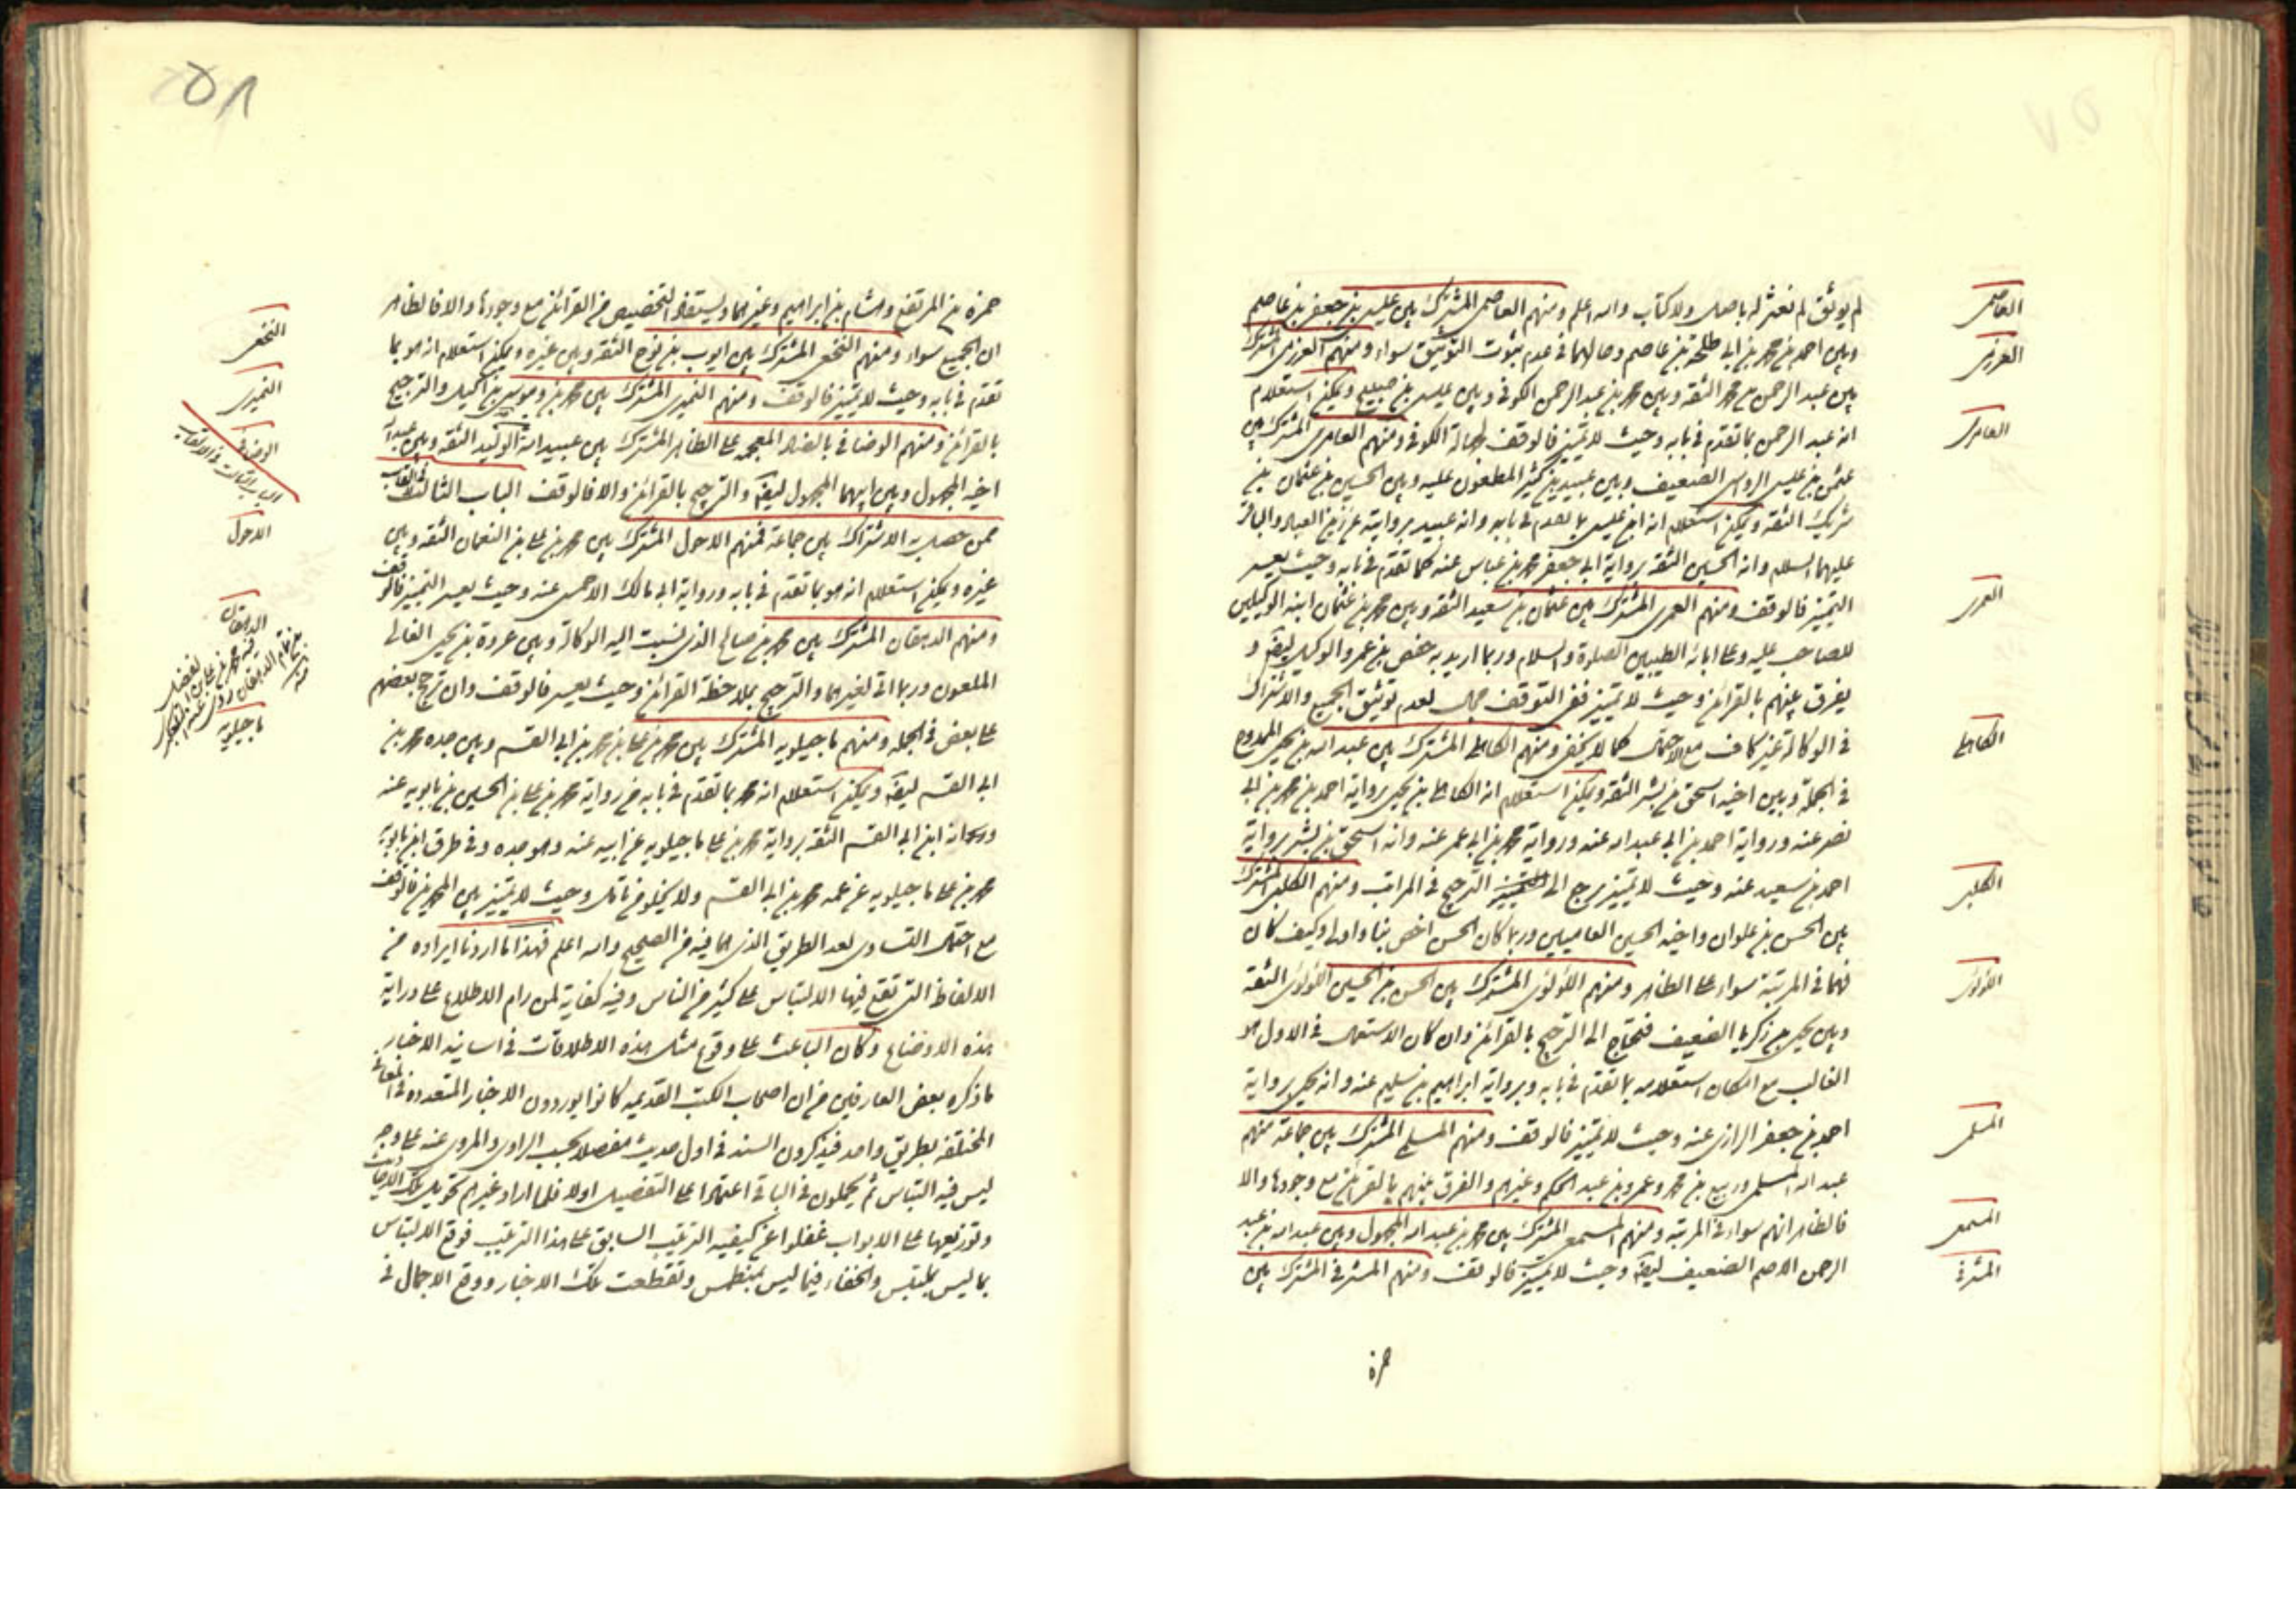 العاصمى
لم يوثق لم نعثر له باصل ولا كتاب والله اعلم ومنهم العاصمى المشترك بين عيسى بن جعفر بن عاصم
العرزمى
وبين احمد بن محمد بن ابى طلحة بن عاصم وحالهما فى عدم ثبوت التوثيق سواء ومنهم العرزمى المشترك
بين عبد الرحمن بن محمد الثقه وبين محمد بن عبد الرحمن الكوفى وبين عيسى بن صبيح ويمكن استعلام
العامرى
انه عبد الرحمن بما تقدم فى بابه وحيث لا تمييز فالوقف لجهالة الكوفى ومنهم العامرى المشترك بين
عثمن بن عيسى الرواسى الضعيف وبين عبيد بن كثير المطعون عليه وبين الحسين بن عثمان بن
شريك الثقه ويمكن استعلام انه ابن عيسى بما تقدم فى بابه وانه عبيد بروايته عن زين العباد والباقر
عليهما السلام وانه الحسين الثقه برواية ابى جعفر محمد بن عباس عنه كما تقدم فى بابه وحيث يعسر
العمرى
التمييز فالوقف ومنهم العمرى المشترك بين عثمان بن سعيد الثقه وبين محمد بن عثمان ابنه الوكيلين
للصاحب عليه وعلى ابائه الطيبين الصلوة والسلام وربما اريد به حفص بن عمرو الوكيل ايضا و
يفرق بينهم بالقرائن وحيث لا تمييز ففى التوقف مجال لعدم توثيق الجميع والاشتراك
الكاهلى
فى الوكالة غير كاف مع الاحتمال كما لا يخفى ومنهم الكاهلى المشترك بين عبد الله بن يحيى الممدوح
فى الجملة وبين اخيه اسحق بن بشر الثقه ويمكن استعلام انه الكاهلى بن يحيى برواية احمد بن محمد بن ابى
نصر عنه ورواية احمد بن ابى عبد الله عنه ورواية محمد بن ابى عمر عنه وانه اسحق بن بشر برواية
الكلبى
احمد بن سعيد عنه وحيث لا تمييز يرجع الى الترجيح فى المراتب ومنهم الكلبى المشترك
بين الحسن بن علوان واخيه الحسين العاميين وربما كان الحسن اخص بنا واولى وكيف كان
اللؤلؤى
فهما فى المرتبة سواء على الظاهر ومنهم اللؤلؤى المشترك بين الحسن بن الحسين اللؤلؤى الثقه
وبين يحيى بن زكريا الضعيف فتحتاج الى الترجيح بالقرائن وان كان الاستعمال فى الاول هو
الغالب مع امكان استعلامه بما تقدم فى بابه وبرواية ابراهيم بن سليم عنه وانه يحيى برواية
المسلى
احمد بن جعفر الرازى عنه وحيث لا تمييز فالوقف ومنهم المسلى المشترك بين جماعة منهم
عبد الله المسلى وربيع بن محمد وعمرو بن عبد الحكم وغيرهم والفرق بينهم بالقرائن مع وجودها والا
المسمعى
فالظاهر انهم سواء فى المرتبة ومنهم المسمعى المشترك بين محمد بن عبد الله المجهول وبين عبد الله بن عبد
المشرقى
الرحمن الاصم الضعيف ايضا وحيث لا تمييز فالوقف ومنهم المشرقى المشترك بين
حمزة
٥٨
حمزة بن المرتفع وهشام بن ابراهيم وغيرهما ويستفاد التخصيص من القرائن مع وجودها والا فالظاهر
النخعى
ان الجميع سواء ومنهم النخعى المشترك بين ايوب بن نوح الثقه وبين غيره ويمكن استعلام انه هو بما
النميرى
تقدم فى بابه وحيث لا تمييز فالوقف ومنهم النميرى المشترك بين محمد بن وموسى بن اكيل والترجيح
بالقرائن ومنهم الوضافى بالضاد المعجمه على الظاهر المشترك بين عبيد الله الوليد الثقه وبين عبد الله
اخيه المجهول وبين ابيهما المجهول ايضا والترجيح بالقرائن والا فالوقف الباب الثالث فى القاب
الاحول
ممن حصل به الاشتراك بين جماعة فمنهم الاحول المشترك بين محمد بن على بن النعمان الثقه وبين
غيره ويمكن استعلام انه هو بما تقدم فى بابه ورواية ابى مالك الاحمسى عنه وحيث يعسر التمييز فالوقف
الدهقان
ومنهم الدهقان المشترك بين محمد بن صالح الذى نسبت اليه الوكالة وبين عروة بن يحيى الغالى
الملعون وربما اتى لغيرهما والترجيح بملاحظة القرائن وحيث يعسر فالوقف وان ترجح بعضهم
ماجيلويه
على بعض فى الجملة ومنهم ماجيلويه المشترك بين محمد بن على بن محمد بن ابى القسم وبين جده محمد بن
ابى القسم ايضا ويمكن استعلام انه محمد بما تقدم فى بابه من رواية محمد بن على بن الحسين بن بابويه عنه
انه ابن ابى القسم الثقه برواية محمد بن على ماجيلويه عن ابيه عنه وهو جده وفى طرق ابن بابويه
محمد بن على ماجيلويه عن عمه محمد بن ابى القسم ولا يخلو من تامل وحيث لا تمييز بين المحمدين فالوقف
مع احتمال التساوى لعد الطريق الذى هما فيه من الصحيح والله اعلم فهذا ما اردنا ايراده من
الالفاظ التى تقع فيها الالتباس على كثير من الناس وفيه كفاية لمن رام الاطلاع على دراية
هذه الاوضاع وكان الباعث على وقوع مثل هذه الاطلاقات فى اسانيد الاخبار
ما ذكره بعض العارفين من ان اصحاب الكتب القديمه كانوا يوردون الاخبار المتعدده فى المعانى
المختلفه بطريق واحد فيذكرون السند فى اول حديث مفصلا بحسب الراوى والمروى عنه على وجه
ليس فيه التباس ثم يجملون فى الباقى اعتمادا على التفصيل اولا فلما اراد غيرهم تحويل تلك الروايات
وتوزيعها على الابواب غفلوا عن كيفيه الترتيب السابق على هذا الترتيب فوقع الالتباس
بما ليس بملتبس والخفاء فيما ليس بمنطمس وتقطعت تلك الاخبار ووقع الاجمال فى